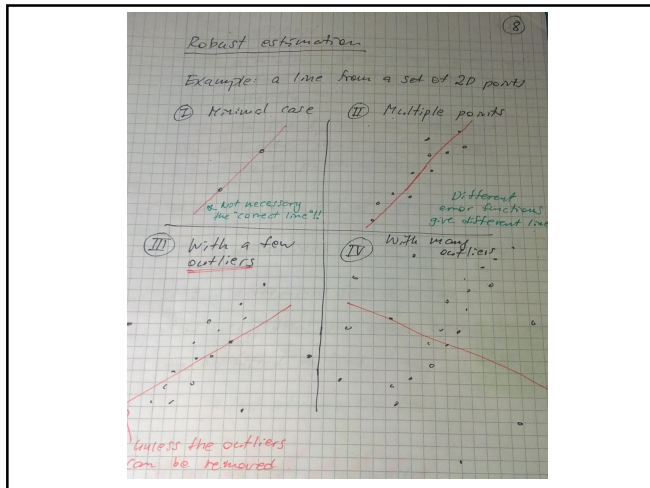 8
Robust estimation
Example: a line from a set of 2D points
I Minimal case
Not necessary
the "correct line"!!
II Multiple points
Different
error functions
give different line
III With a few
outliers
IV With many
outliers
unless the outliers
can be removed